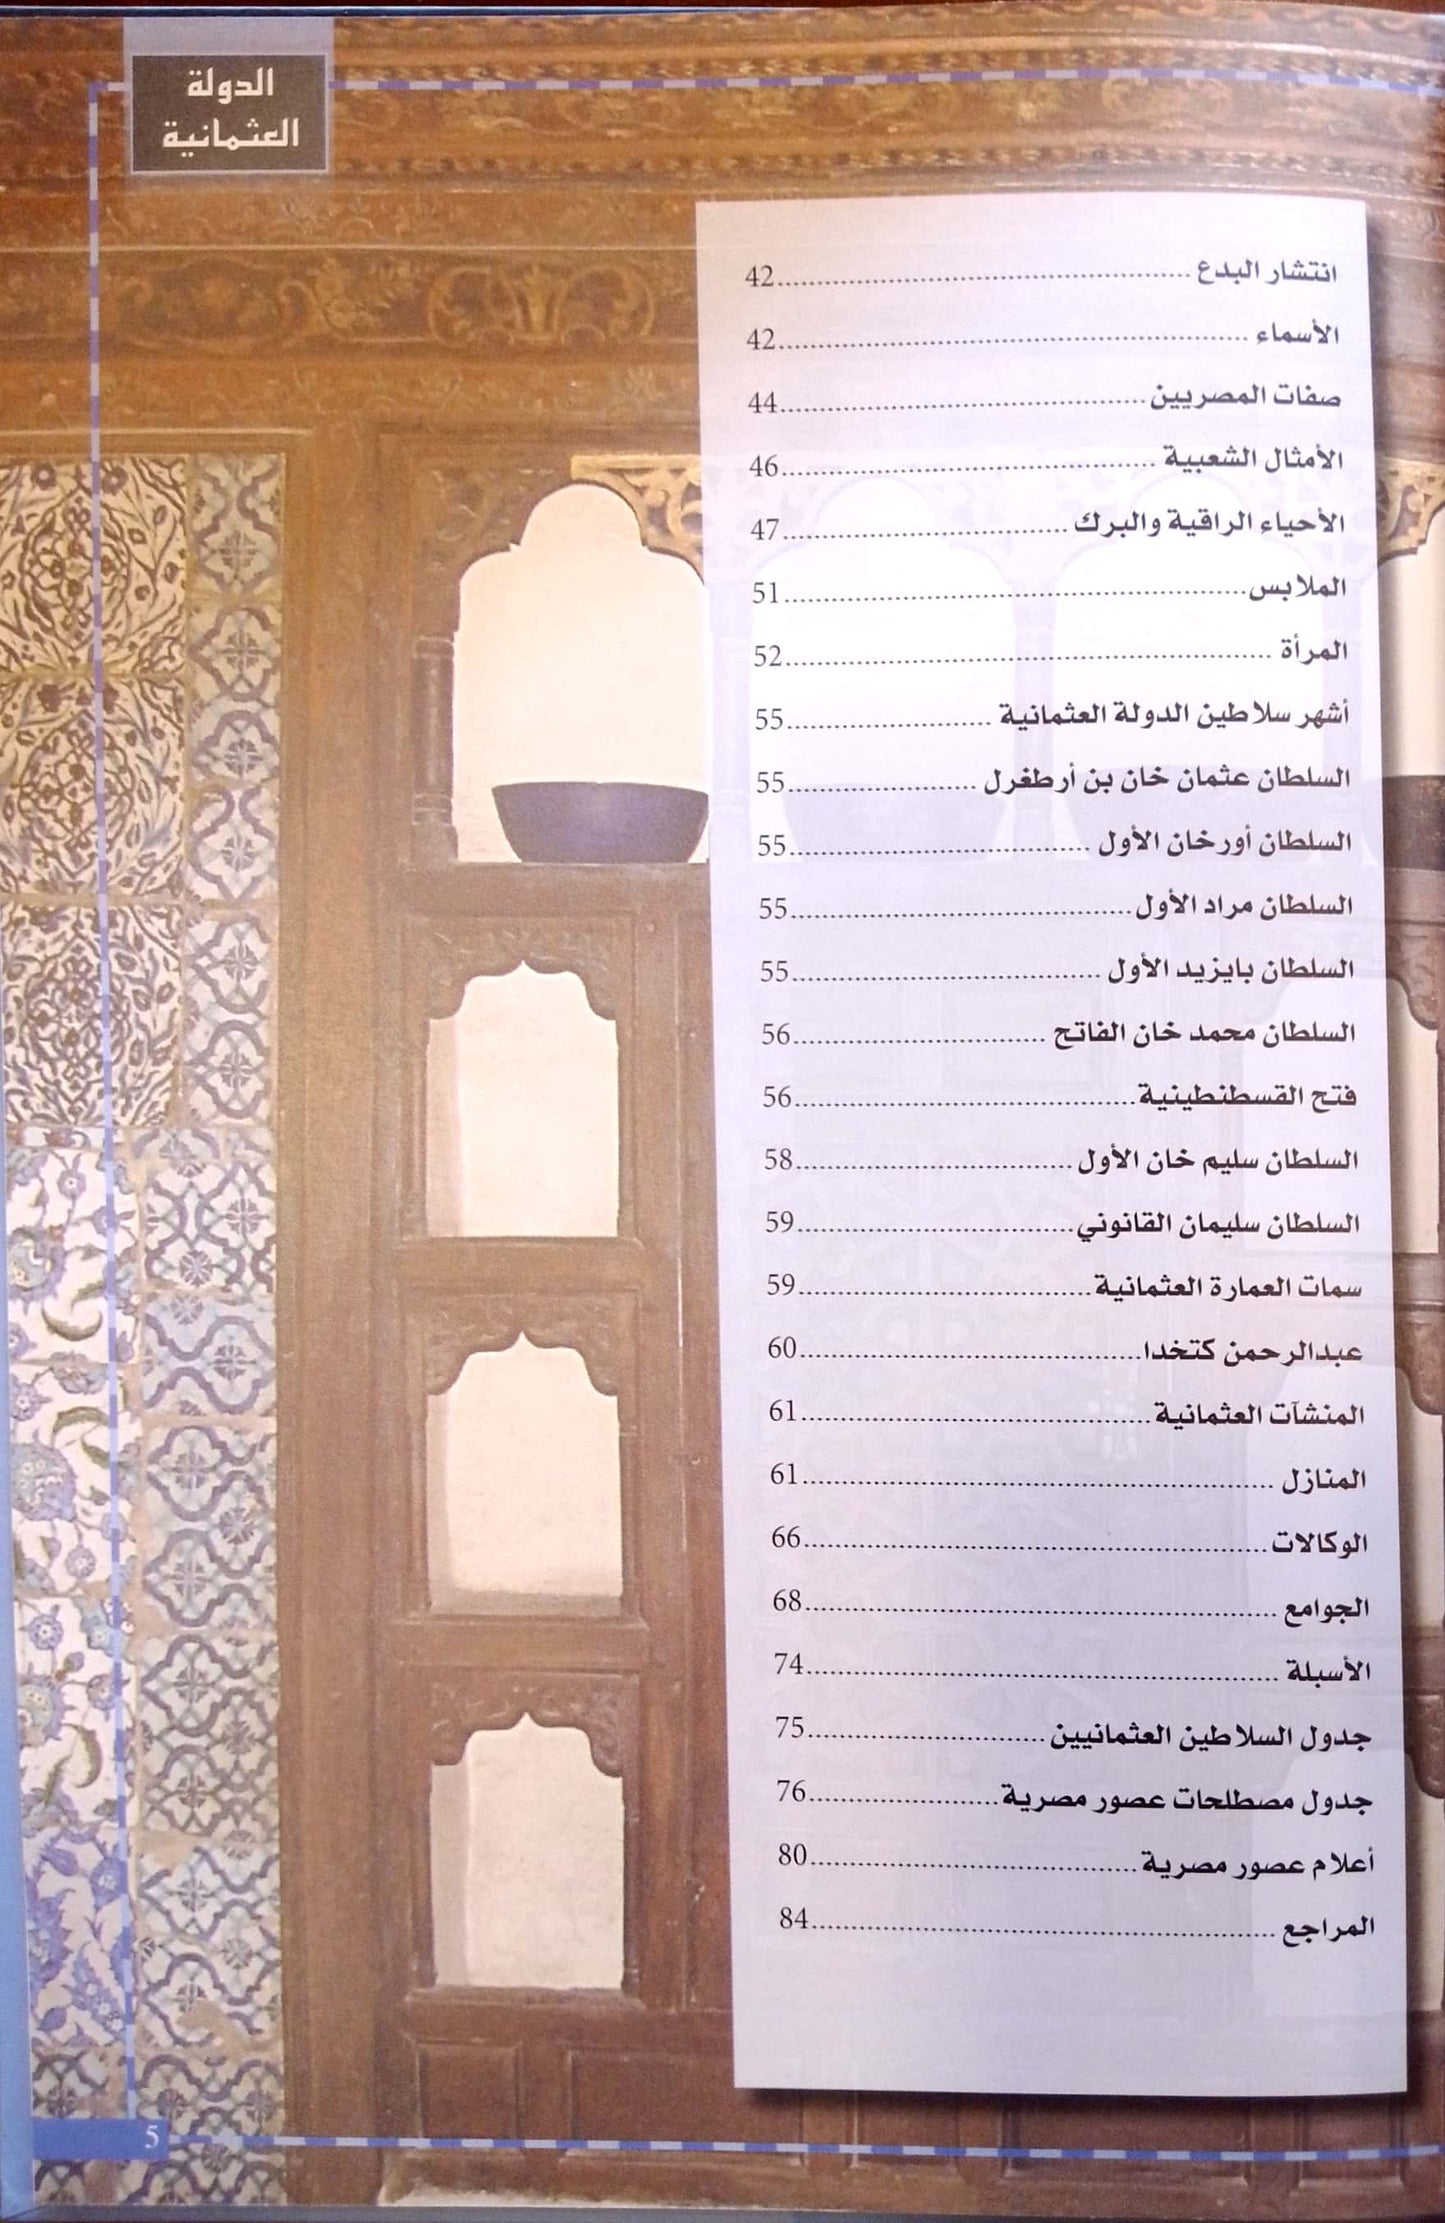 الدولة
العثمانية
انتشار البدع ..................................................... 42
الأسماء ............................................................ 42
صفات المصريين ............................................... 44
الأمثال الشعبية ................................................ 46
الأحياء الراقية والبرك ..................................... 47
الملابس ........................................................... 51
المرأة .............................................................. 52
أشهر سلاطين الدولة العثمانية .......................... 55
السلطان عثمان خان بن أرطغرل ........................ 55
السلطان أورخان الأول ....................................... 55
السلطان مراد الأول ........................................... 55
السلطان بايزيد الأول ........................................ 55
السلطان محمد خان الفاتح ................................ 56
فتح القسطنطينية ........................................... 56
السلطان سليم خان الأول .................................. 58
السلطان سليمان القانوني .................................. 59
سمات العمارة العثمانية .................................... 59
عبدالرحمن كتخدا .......................................... 60
المنشآت العثمانية ........................................... 61
المنازل ............................................................ 61
الوكالات .......................................................... 66
الجوامع ........................................................... 68
الأسبلة ............................................................ 74
جدول السلاطين العثمانيين .............................. 75
جدول مصطلحات عصور مصرية ........................ 76
أعلام عصور مصرية ......................................... 80
المراجع ........................................................... 84
5